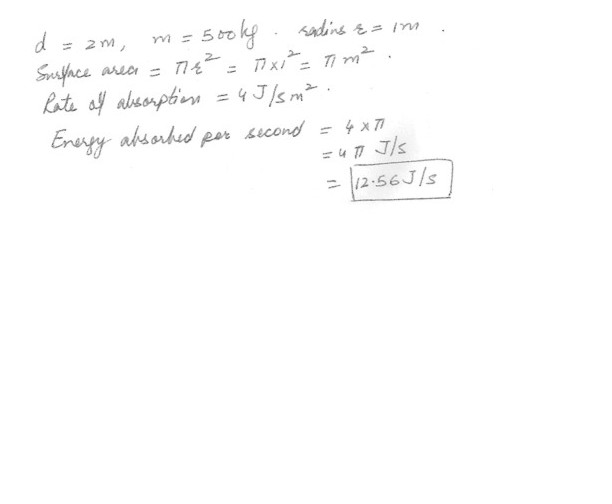 d = 2m, m = 500kg. radius r = 1m.
Surface area = πr² = π×1² = π m².
Rate of absorption = 4 J/s m².
Energy absorbed per second = 4 × π
= 4π J/s
= 12.56 J/s